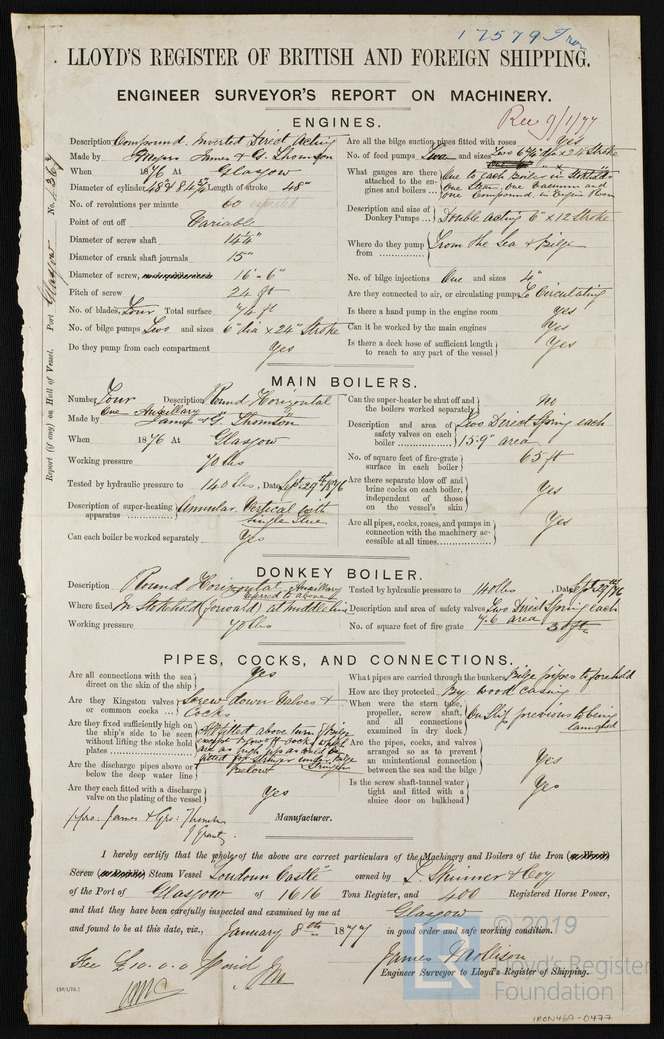 17579 Iron
LLOYD'S REGISTER OF BRITISH AND FOREIGN SHIPPING.
ENGINEER SURVEYOR'S REPORT ON MACHINERY.
Rec 9/1/77
ENGINES.
Description Compound Inverted Direct Acting
Made by Messrs James & G. Thomson
When 1876 At Glasgow
Diameter of cylinder, 48" & 84" Length of stroke 48"
No. of revolutions per minute 60
Point of cut off Variable
Diameter of screw shaft 14¼"
Diameter of crank shaft journals 15"
Diameter of screw, 16'-6"
Pitch of screw 24 ft
No. of blades, Four Total surface 74 ft
No. of bilge pumps Two and sizes 6" dia x 24" Stroke
Do they pump from each compartment Yes
Are all the bilge suction pipes fitted with roses Yes
No. of feed pumps Two and sizes Two dia x 24" Stroke
What gauges are there attached to the engines and boilers ... One to each Boiler in Stokehold One Steam, one Vacuum and one Compound in Engine Room
Description and size of Donkey Pumps ... Double Acting 6" x 12 Stroke
Where do they pump from From the Sea & Bilge
No. of bilge injections One and sizes 4"
Are they connected to air, or circulating pumps To Circulating
Is there a hand pump in the engine room yes
Can it be worked by the main engines Yes
Is there a deck hose of sufficient length to reach to any part of the vessel Yes
Report (if any) on Hull of Vessel. Port Glasgow No.
MAIN BOILERS.
Number Four Description Round Horizontal
One Auxillary " "
Made by James & G. Thomson
When 1876 At Glasgow
Working pressure 70 lbs
Tested by hydraulic pressure to 140 lbs, Date Sept. 29th 1876
Description of super-heating apparatus Annular. Vertical with single flue
Can each boiler be worked separately Yes
Can the super-heater be shut off and the boilers worked separately No
Description and area of safety valves on each boiler Two Direct Spring each 15.9" area
No. of square feet of fire-grate surface in each boiler 65 ft
Are there separate blow off and brine cocks on each boiler, independent of those on the vessel's skin Yes
Are all pipes, cocks, roses, and pumps in connection with the machinery accessible at all times Yes
DONKEY BOILER.
Description Round Horizontal Auxillary referred to above
Where fixed In Stokehold (forward) at middle line
Working pressure 70 lbs
Tested by hydraulic pressure to 140 lbs, Date Sept 29th/76
Description and area of safety valves Two Direct Spring each 7.6 area
No. of square feet of fire grate
PIPES, COCKS, AND CONNECTIONS.
Are all connections with the sea direct on the skin of the ship Yes
Are they Kingston valves or common cocks Screw down Valves & Cocks
Are they fixed sufficiently high on the ship's side to be seen without lifting the stoke hold plates
Are the discharge pipes above or below the deep water line Below
Are they each fitted with a discharge valve on the plating of the vessel Yes
What pipes are carried through the bunkers Bilge pipes to forehold
How are they protected By wood casing
When were the stern tube, propeller, screw shaft, and all connections examined in dry dock On Slip previous to being launched
Are the pipes, cocks, and valves arranged so as to prevent an unintentional connection between the sea and the bilge Yes
Is the screw shaft tunnel water-tight and fitted with a sluice door on bulkhead Yes
p/pro: James & Geo: Thomson
J Grant
Manufacturer.
I hereby certify that the whole of the above are correct particulars of the Machinery and Boilers of the Iron
Screw Steam Vessel "Loudoun Castle" owned by T. Skinner & Coy
of the Port of Glasgow of 1616 Tons Register, and 400 Registered Horse Power,
and that they have been carefully inspected and examined by me at Glasgow
and found to be at this date, viz., January 8th 1877 in good order and safe working condition.
Fee £10.0.0 paid JM
James Mollison
Engineer Surveyor to Lloyd's Register of Shipping.
© 2019
Lloyd's Register
Foundation
LR
IRON469-0477